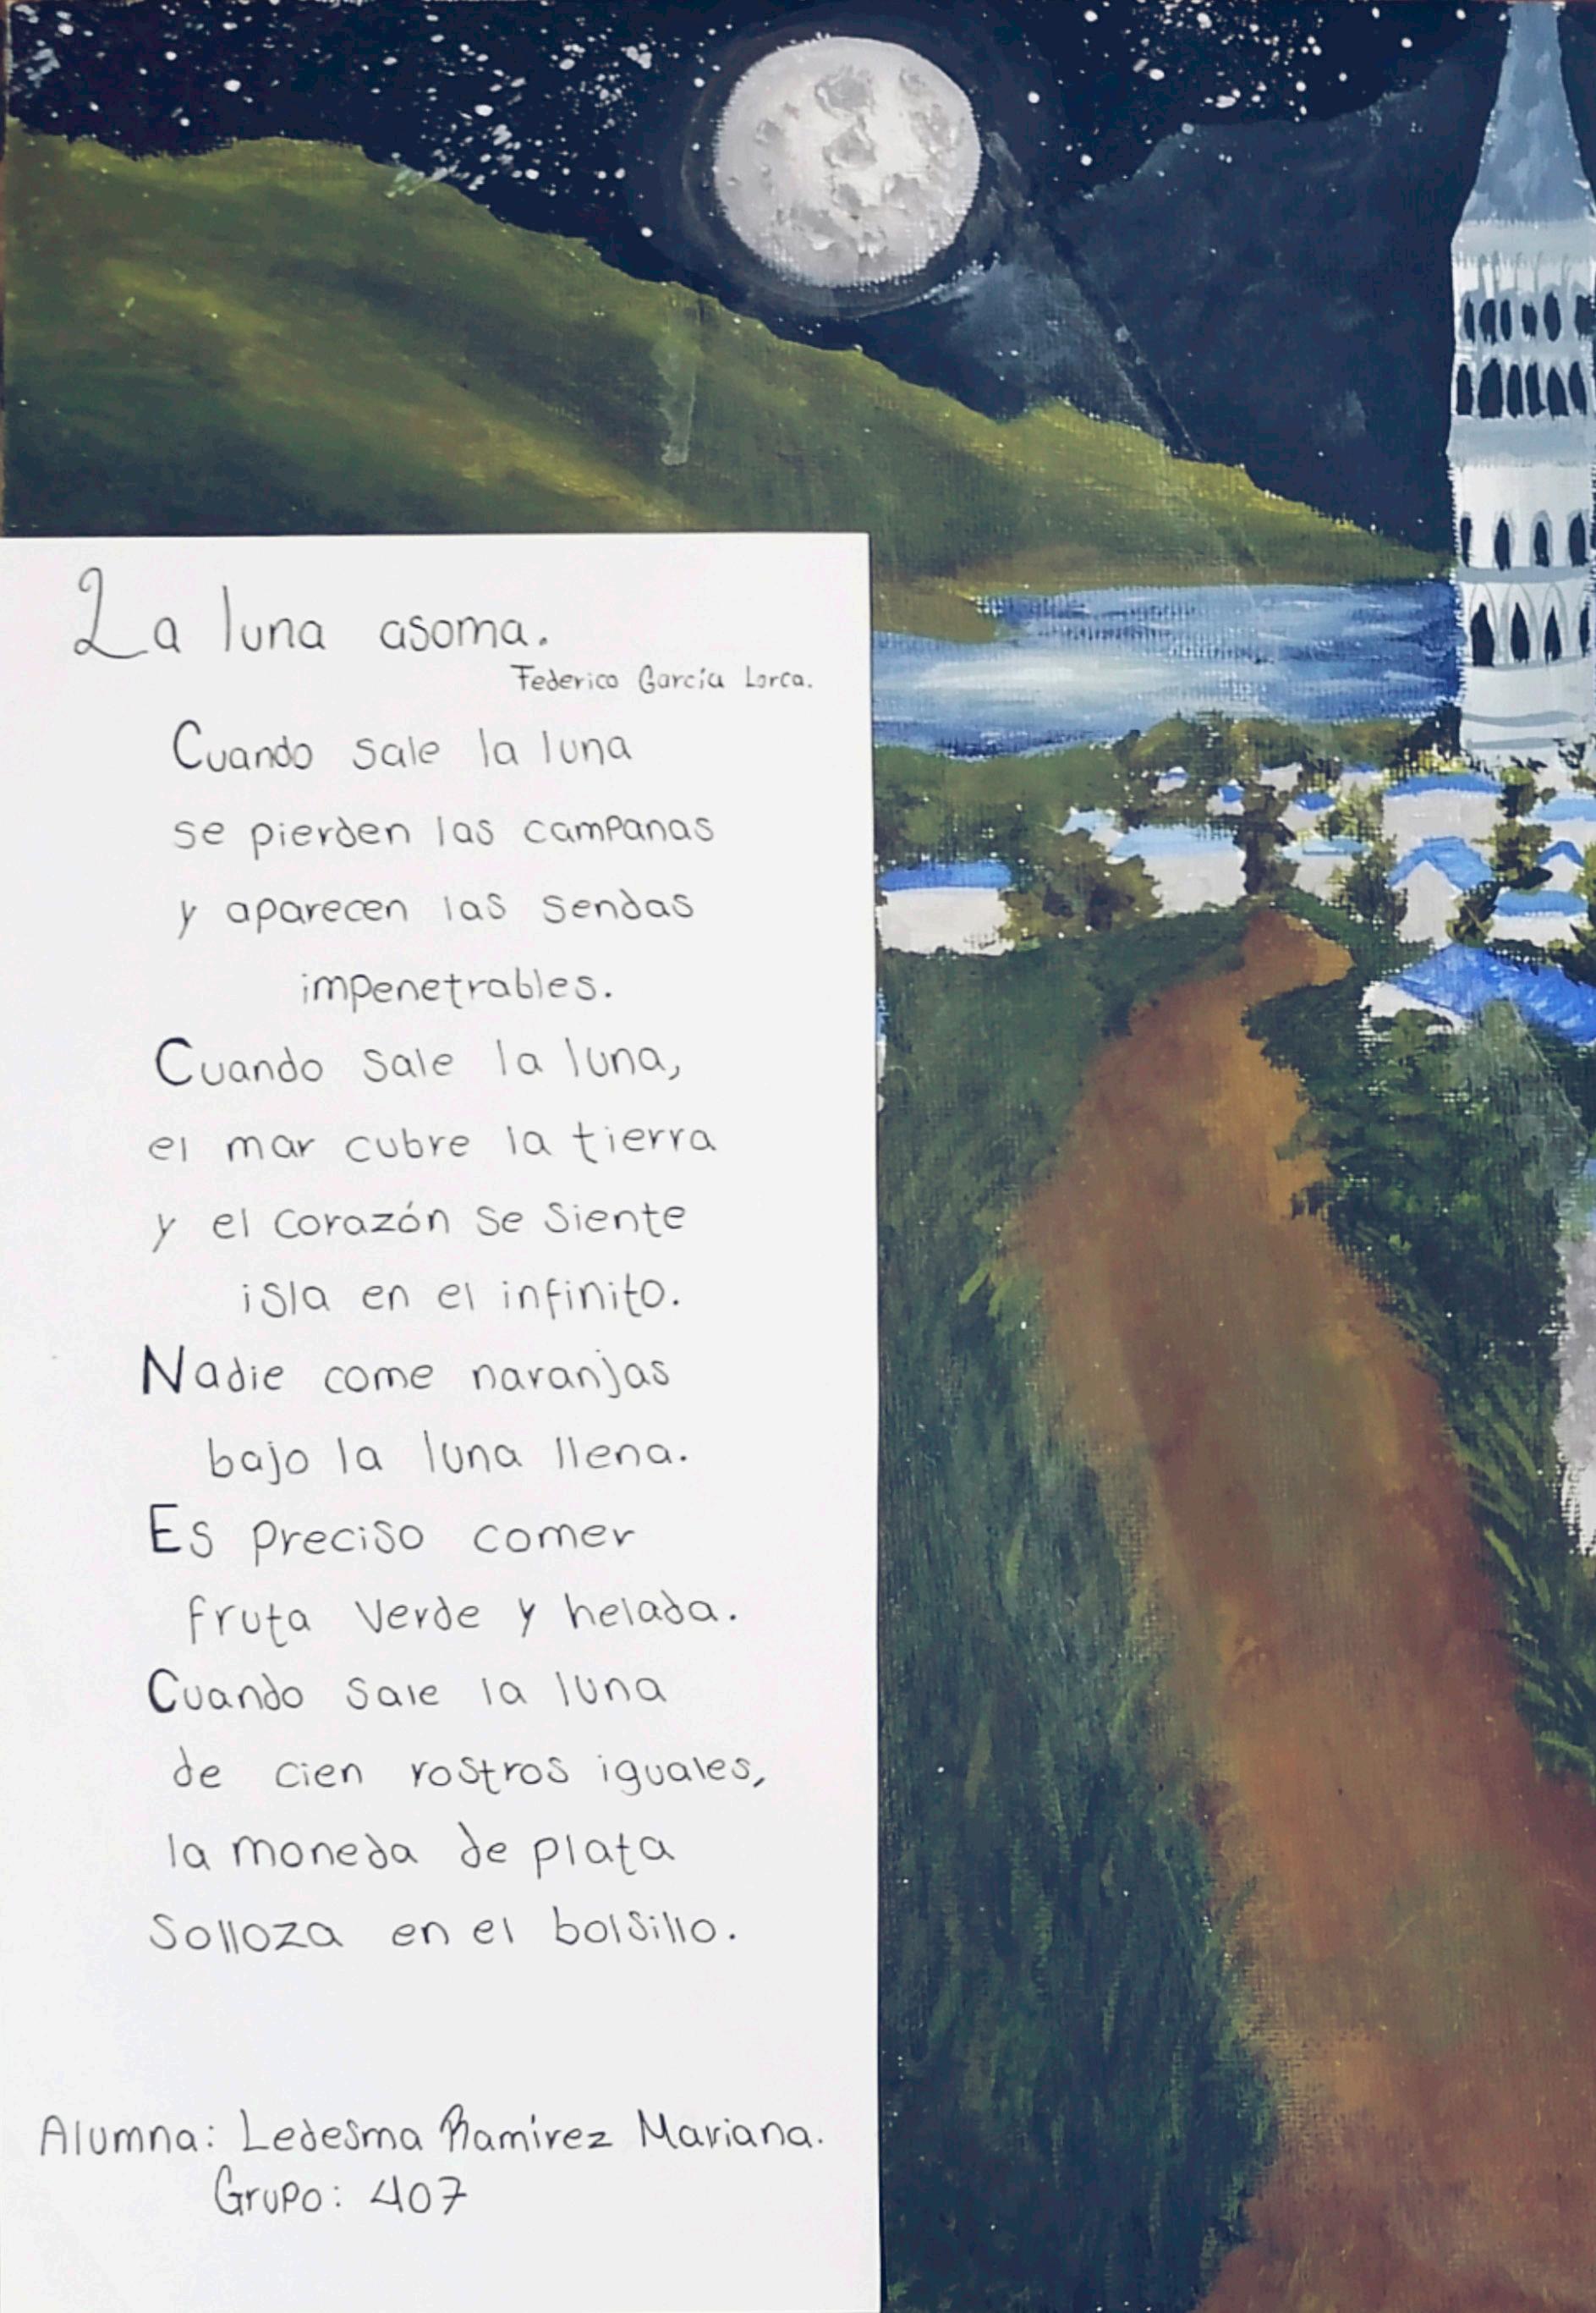 La luna asoma.
Federico García Lorca.
Cuando sale la luna
se pierden las campanas
y aparecen las sendas
impenetrables.
Cuando sale la luna,
el mar cubre la tierra
y el corazón se siente
isla en el infinito.
Nadie come naranjas
bajo la luna llena.
Es preciso comer
fruta verde y helada.
Cuando sale la luna
de cien rostros iguales,
la moneda de plata
solloza en el bolsillo.
Alumna: Ledesma Ramírez Mariana.
Grupo: 407